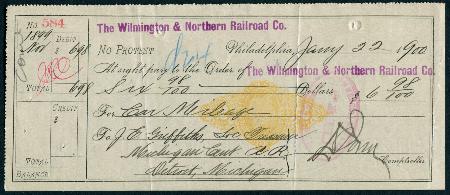 No. 584
1899
Nov
DEBIT
$ 698
TOTAL 698
CREDIT
$
TOTAL
BALANCE
The Wilmington & Northern Railroad Co.
NO PROTEST Philadelphia, Jany 22 1900
At sight pay to the Order of The Wilmington & Northern Railroad Co.
Six 98/100 Dollars $ 6 98/100
For Car Mileage
To J. E. Griffiths, Loc Treasurer
Michigan Cent. R.R.
Detroit, Michigan
Comptroller